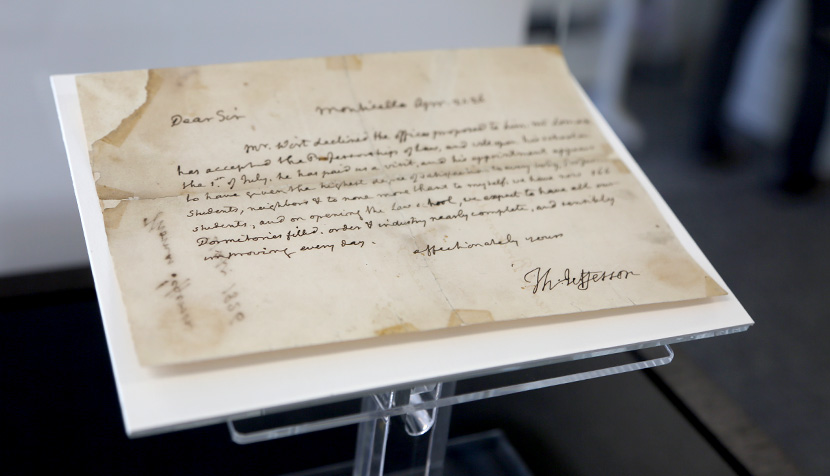 Dear Sir Monticello Apr. 21. 26
Mr. Wirt declined the offices proposed to him. Mr Lomax
has accepted the Professorship of law, and will open his school on
the 1st of July. he has paid us a visit, and his appointment appears
to have given the highest degree of satisfaction to every body,
students, neighbors & to none more than to myself. we have now 166
students, and on opening the law school, we expect to have all our
Dormitories filled. order & industry nearly complete, and sensibly
improving every day. affectionately yours
Th: Jefferson